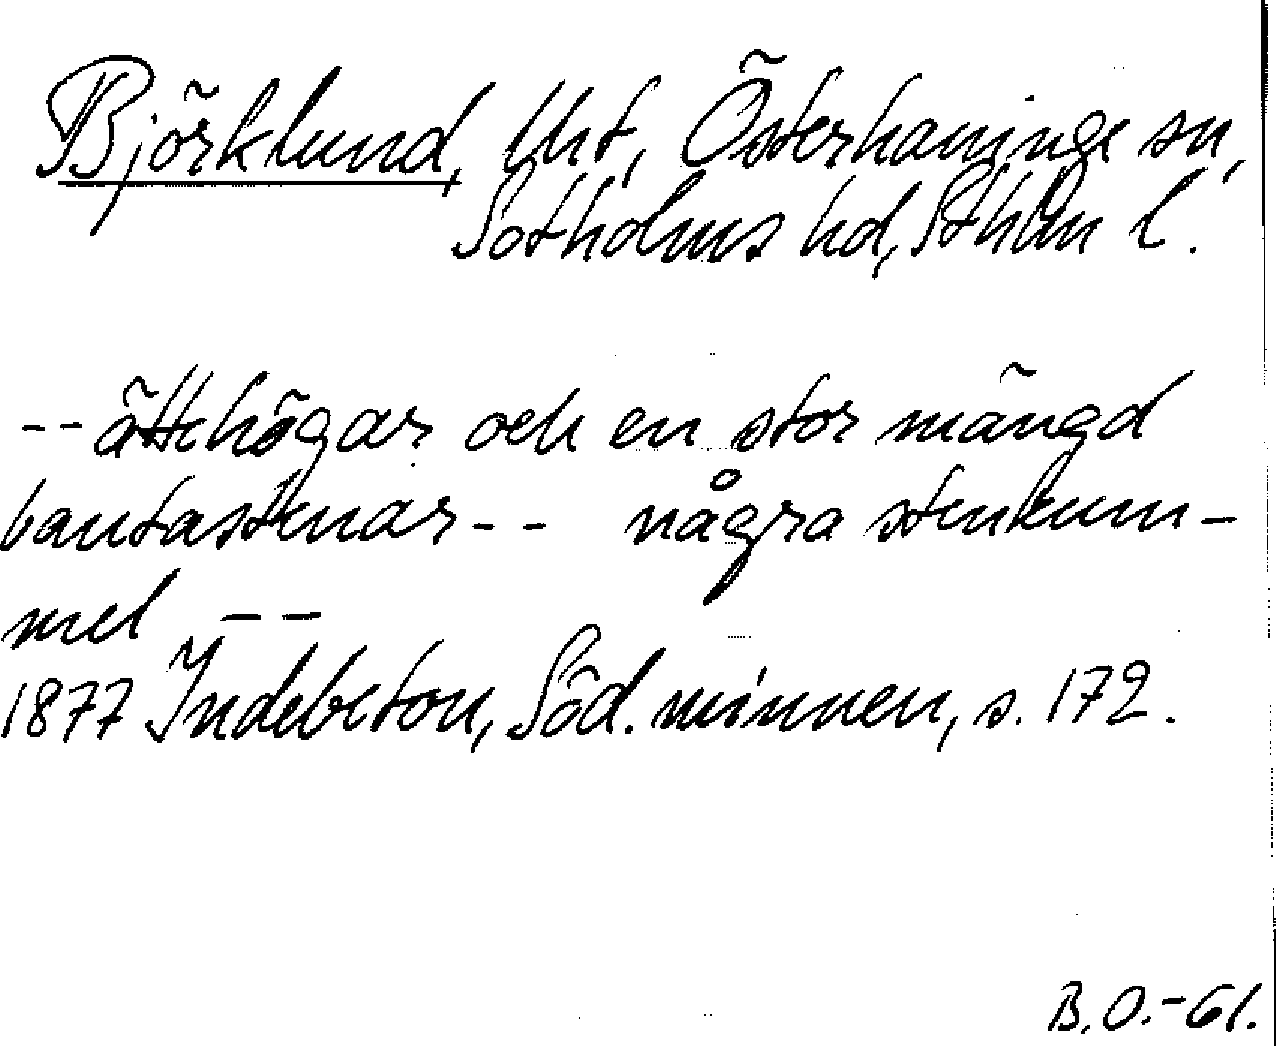 Björklund, Utt, Österhaninge sn,
Sotholms hd, Sthlm l.
-- ättehögar och en stor mängd
bautastenar -- några stenkum-
mel --
1877 Indebetou, Söd. minnen, s. 172.
B.O.-61.